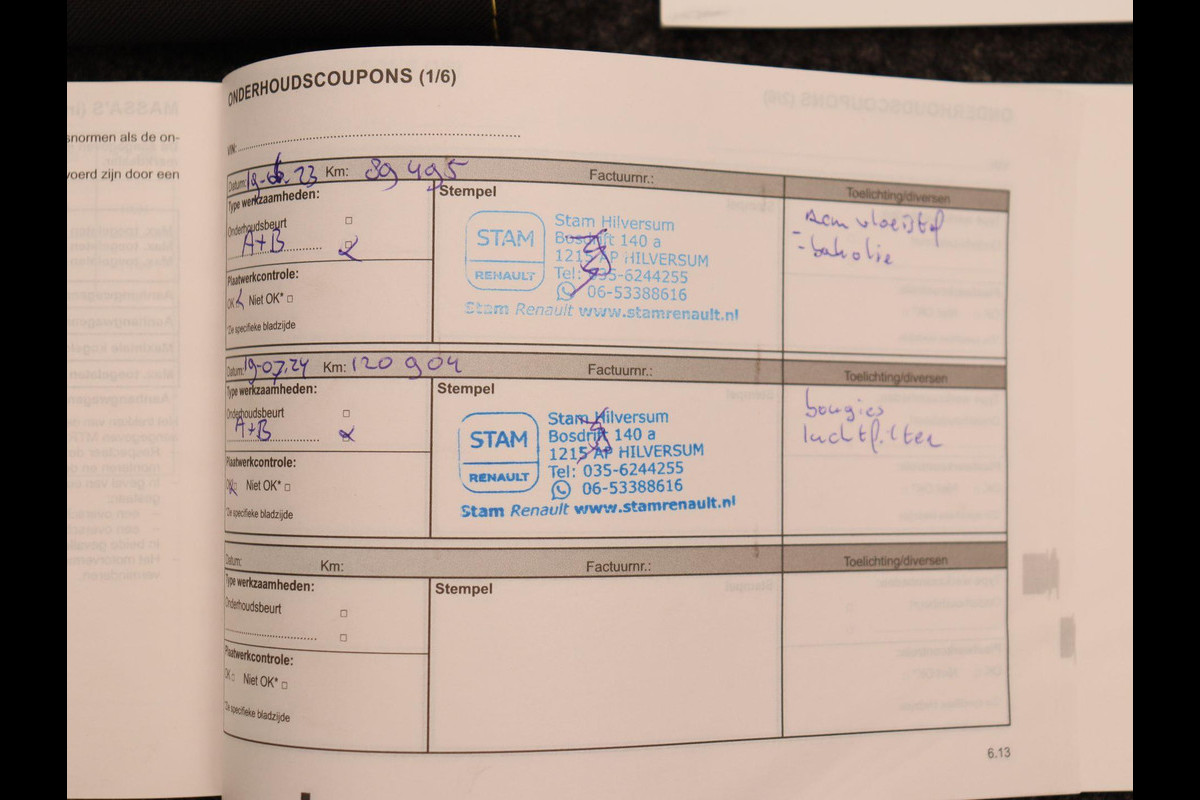 snormen als de on-
voerd zijn door een
ONDERHOUDSCOUPONS (1/6)
VIN:
Datum: 19-06-23 Km: 89 495 Factuurnr.: Toelichting/diversen
Type werkzaamheden:
Onderhoudsbeurt
A+B
Plaatwerkcontrole:
OK Niet OK*
*De specifieke bladzijde
Stempel
STAM
RENAULT
Stam Hilversum
Bosdrift 140 a
1215 AP HILVERSUM
Tel: 035-6244255
06-53388616
Stam Renault www.stamrenault.nl
remvloeistof
- bakolie
Datum: 19-07-24 Km: 120 904 Factuurnr.: Toelichting/diversen
Type werkzaamheden:
Onderhoudsbeurt
A+B
Plaatwerkcontrole:
OK Niet OK*
*De specifieke bladzijde
Stempel
STAM
RENAULT
Stam Hilversum
Bosdrift 140 a
1215 AP HILVERSUM
Tel: 035-6244255
06-53388616
Stam Renault www.stamrenault.nl
bougies
luchtfilter
Datum: Km: Factuurnr.: Toelichting/diversen
Type werkzaamheden:
Onderhoudsbeurt
Plaatwerkcontrole:
OK Niet OK*
*De specifieke bladzijde
Stempel
6.13